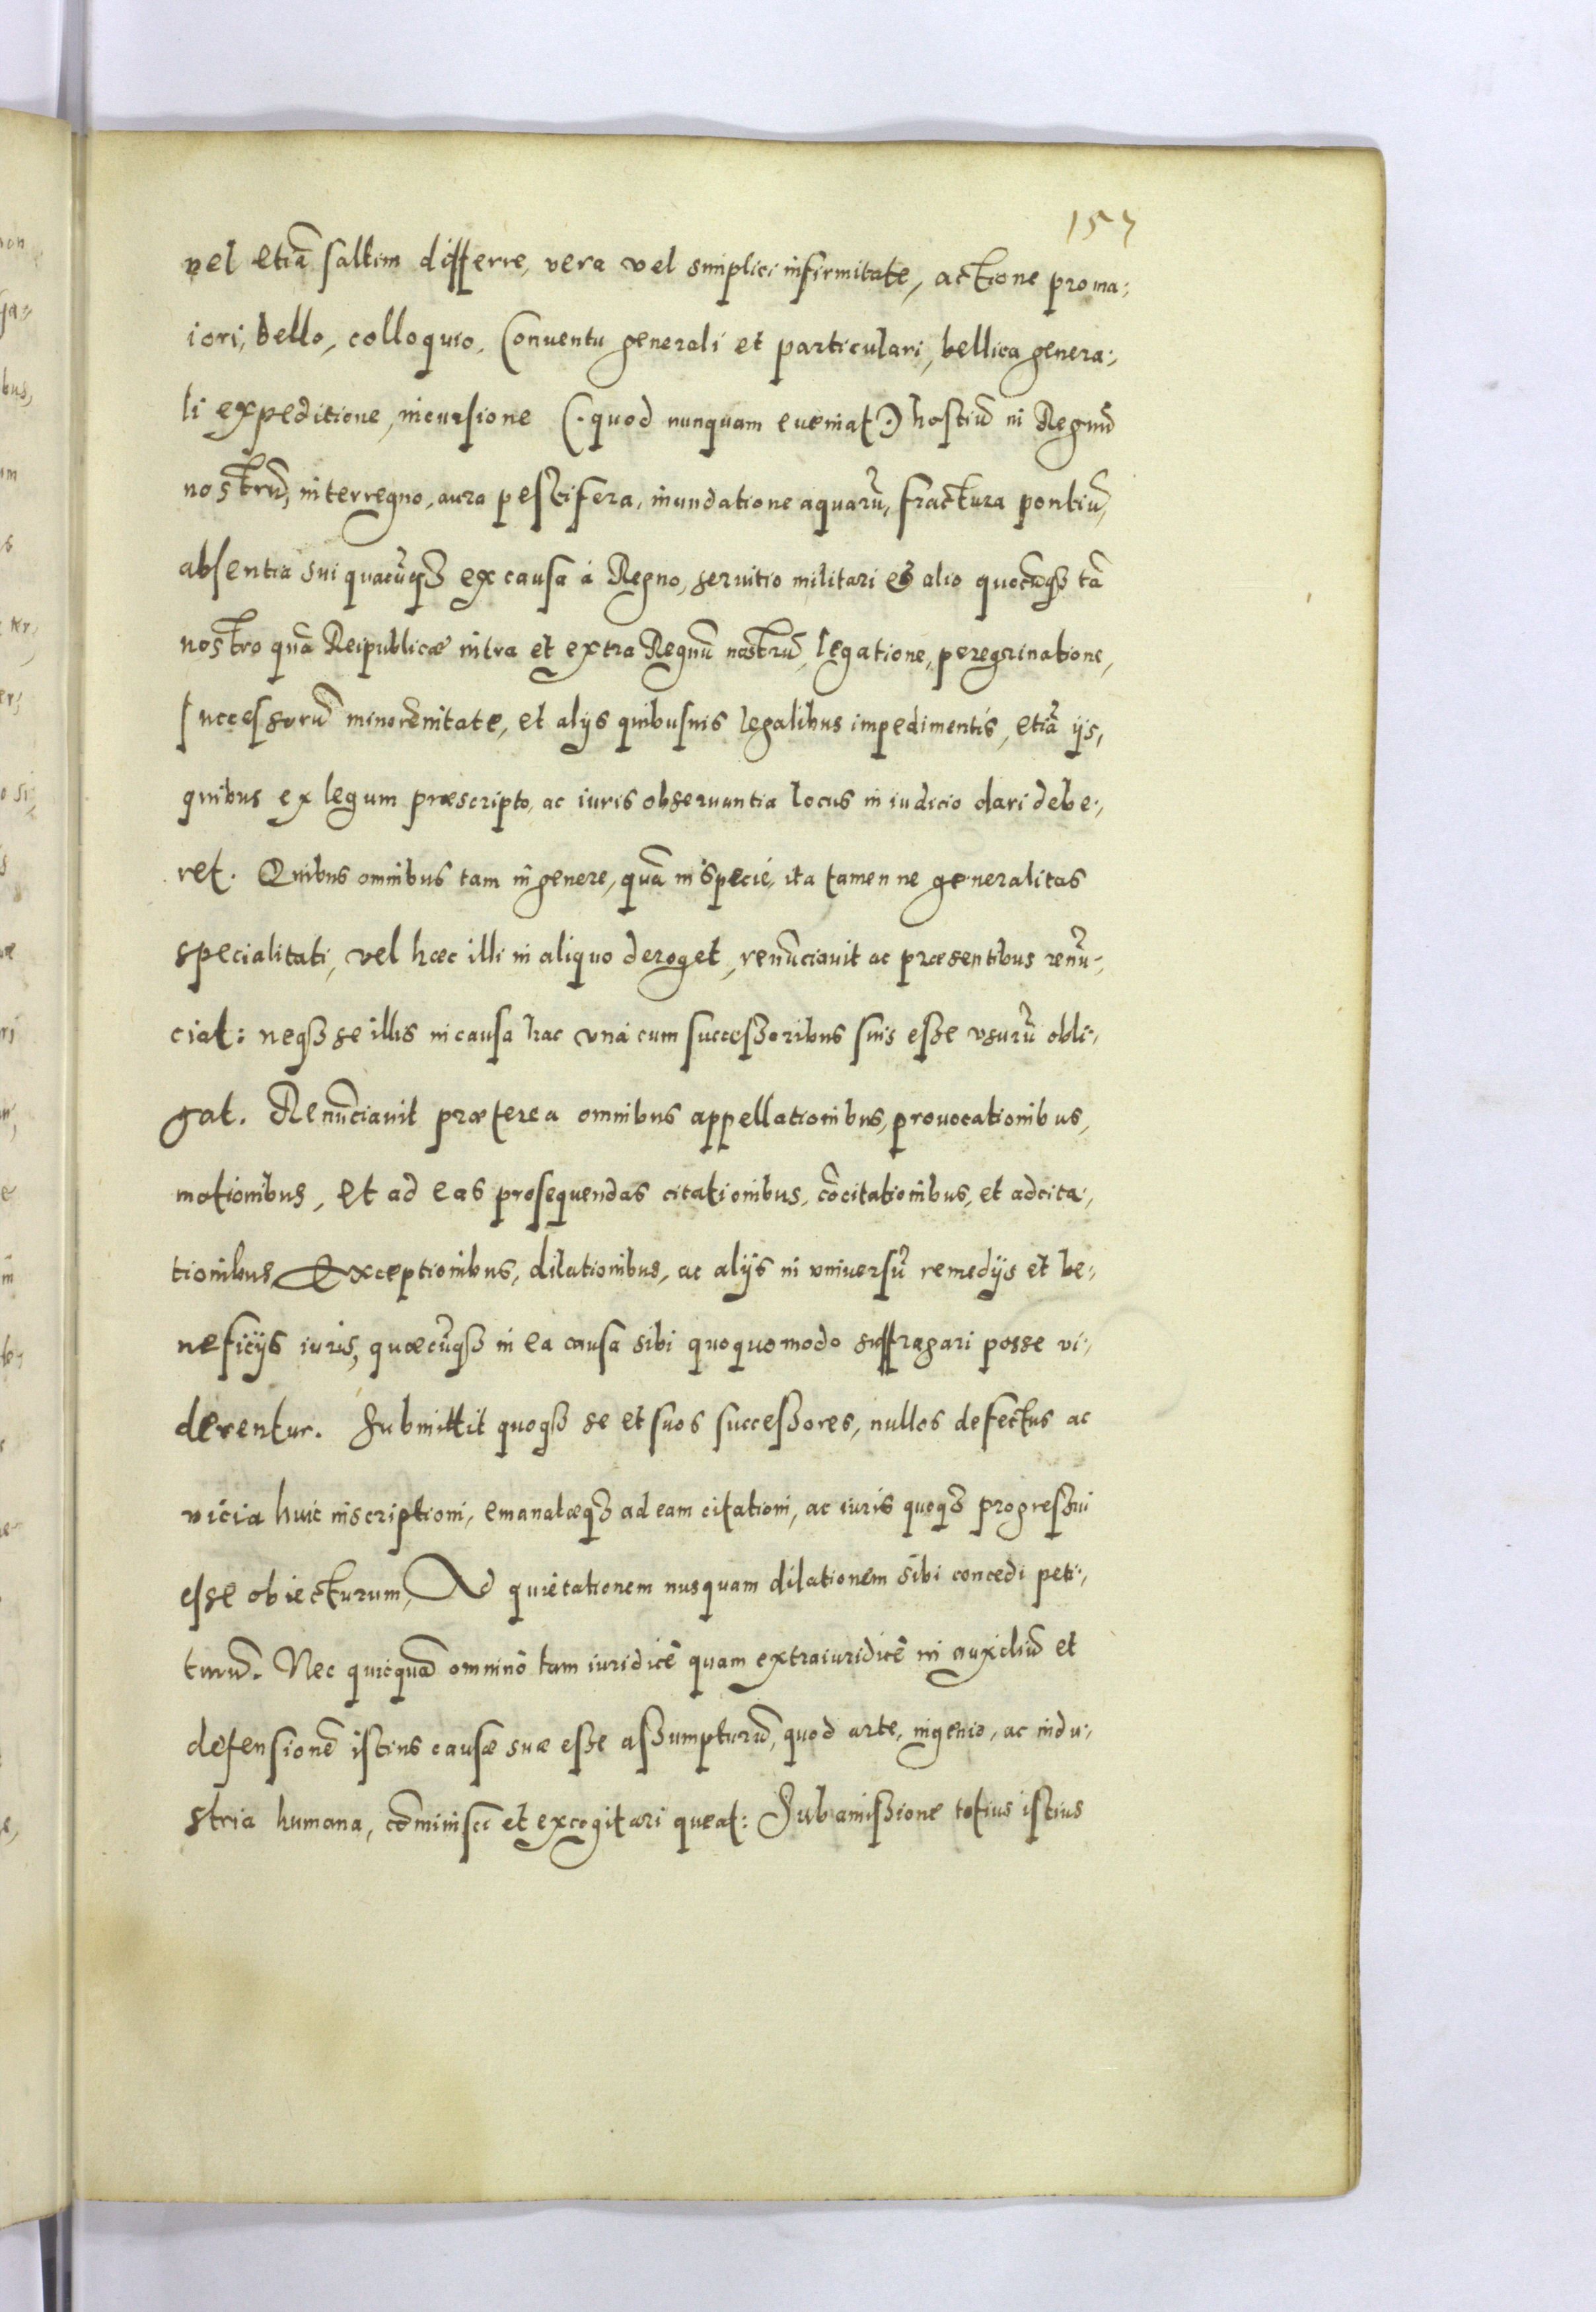 157
vel etiã saltim differre, vera vel simplici infirmitate, actione pro ma:
iori, bello, colloquio, Conuentu generali et particulari, bellica genera:
li expeditione, incursione (: quod nunquam eueniat :) hostiũ in Regnũ
nostrũ, interregno, aura pestifera, inundatione aquarũ, fractura pontiũ,
absentia sui quacũqꝫ ex causa á Regno, seruitio militari et alio quocũqꝫ tã
nostro quã Reipublicæ intra et extra Regnũ nostrũ, legatione, peregrinatione,
successorũ minorẽnitate, et alijs quibusuis legalibus impedimentis, etiã ijs,
quibus ex legum præscripto, ac iuris obseruantia locus in iudicio dari debe:
ret. Quibus omnibus tam in genere, quã in specie, ita tamen ne generalitas
specialitati, vel hæc illi in aliquo deroget, renũciauit ac præsentibus renũ:
ciat: neqꝫ se illis in causa hac vná cum successoribus suis esse vsurũ obli:
gat. Renũciauit præterea omnibus appellationibus, prouocationibus,
motionibus, et ad eas prosequendas citationibus, cõcitationibus, et adcita:
tionibus, Exceptionibus, dilationibus, ac alijs in vniuersũ remedijs et be:
neficijs iuris, quæcũqꝫ in ea causa sibi quoquomodo suffragari posse vi:
derentur. Submittit quoqꝫ se et suos successores, nullos defectus ac
vicia huic inscriptioni, emanatæqꝫ ad eam citationi, ac iuris quoqꝫ progressui
esse obiecturum, Ad quietationem nusquam dilationem sibi concedi peti:
turũ. Nec quicquã omninò tam iuridicè quam extraiuridicè in auxiliũ et
defensionẽ istius causæ suæ esse assumpturũ, quod arte, ingenio, ac indu:
stria humana, cõminisci et excogitari queat: Sub amissione totius istius